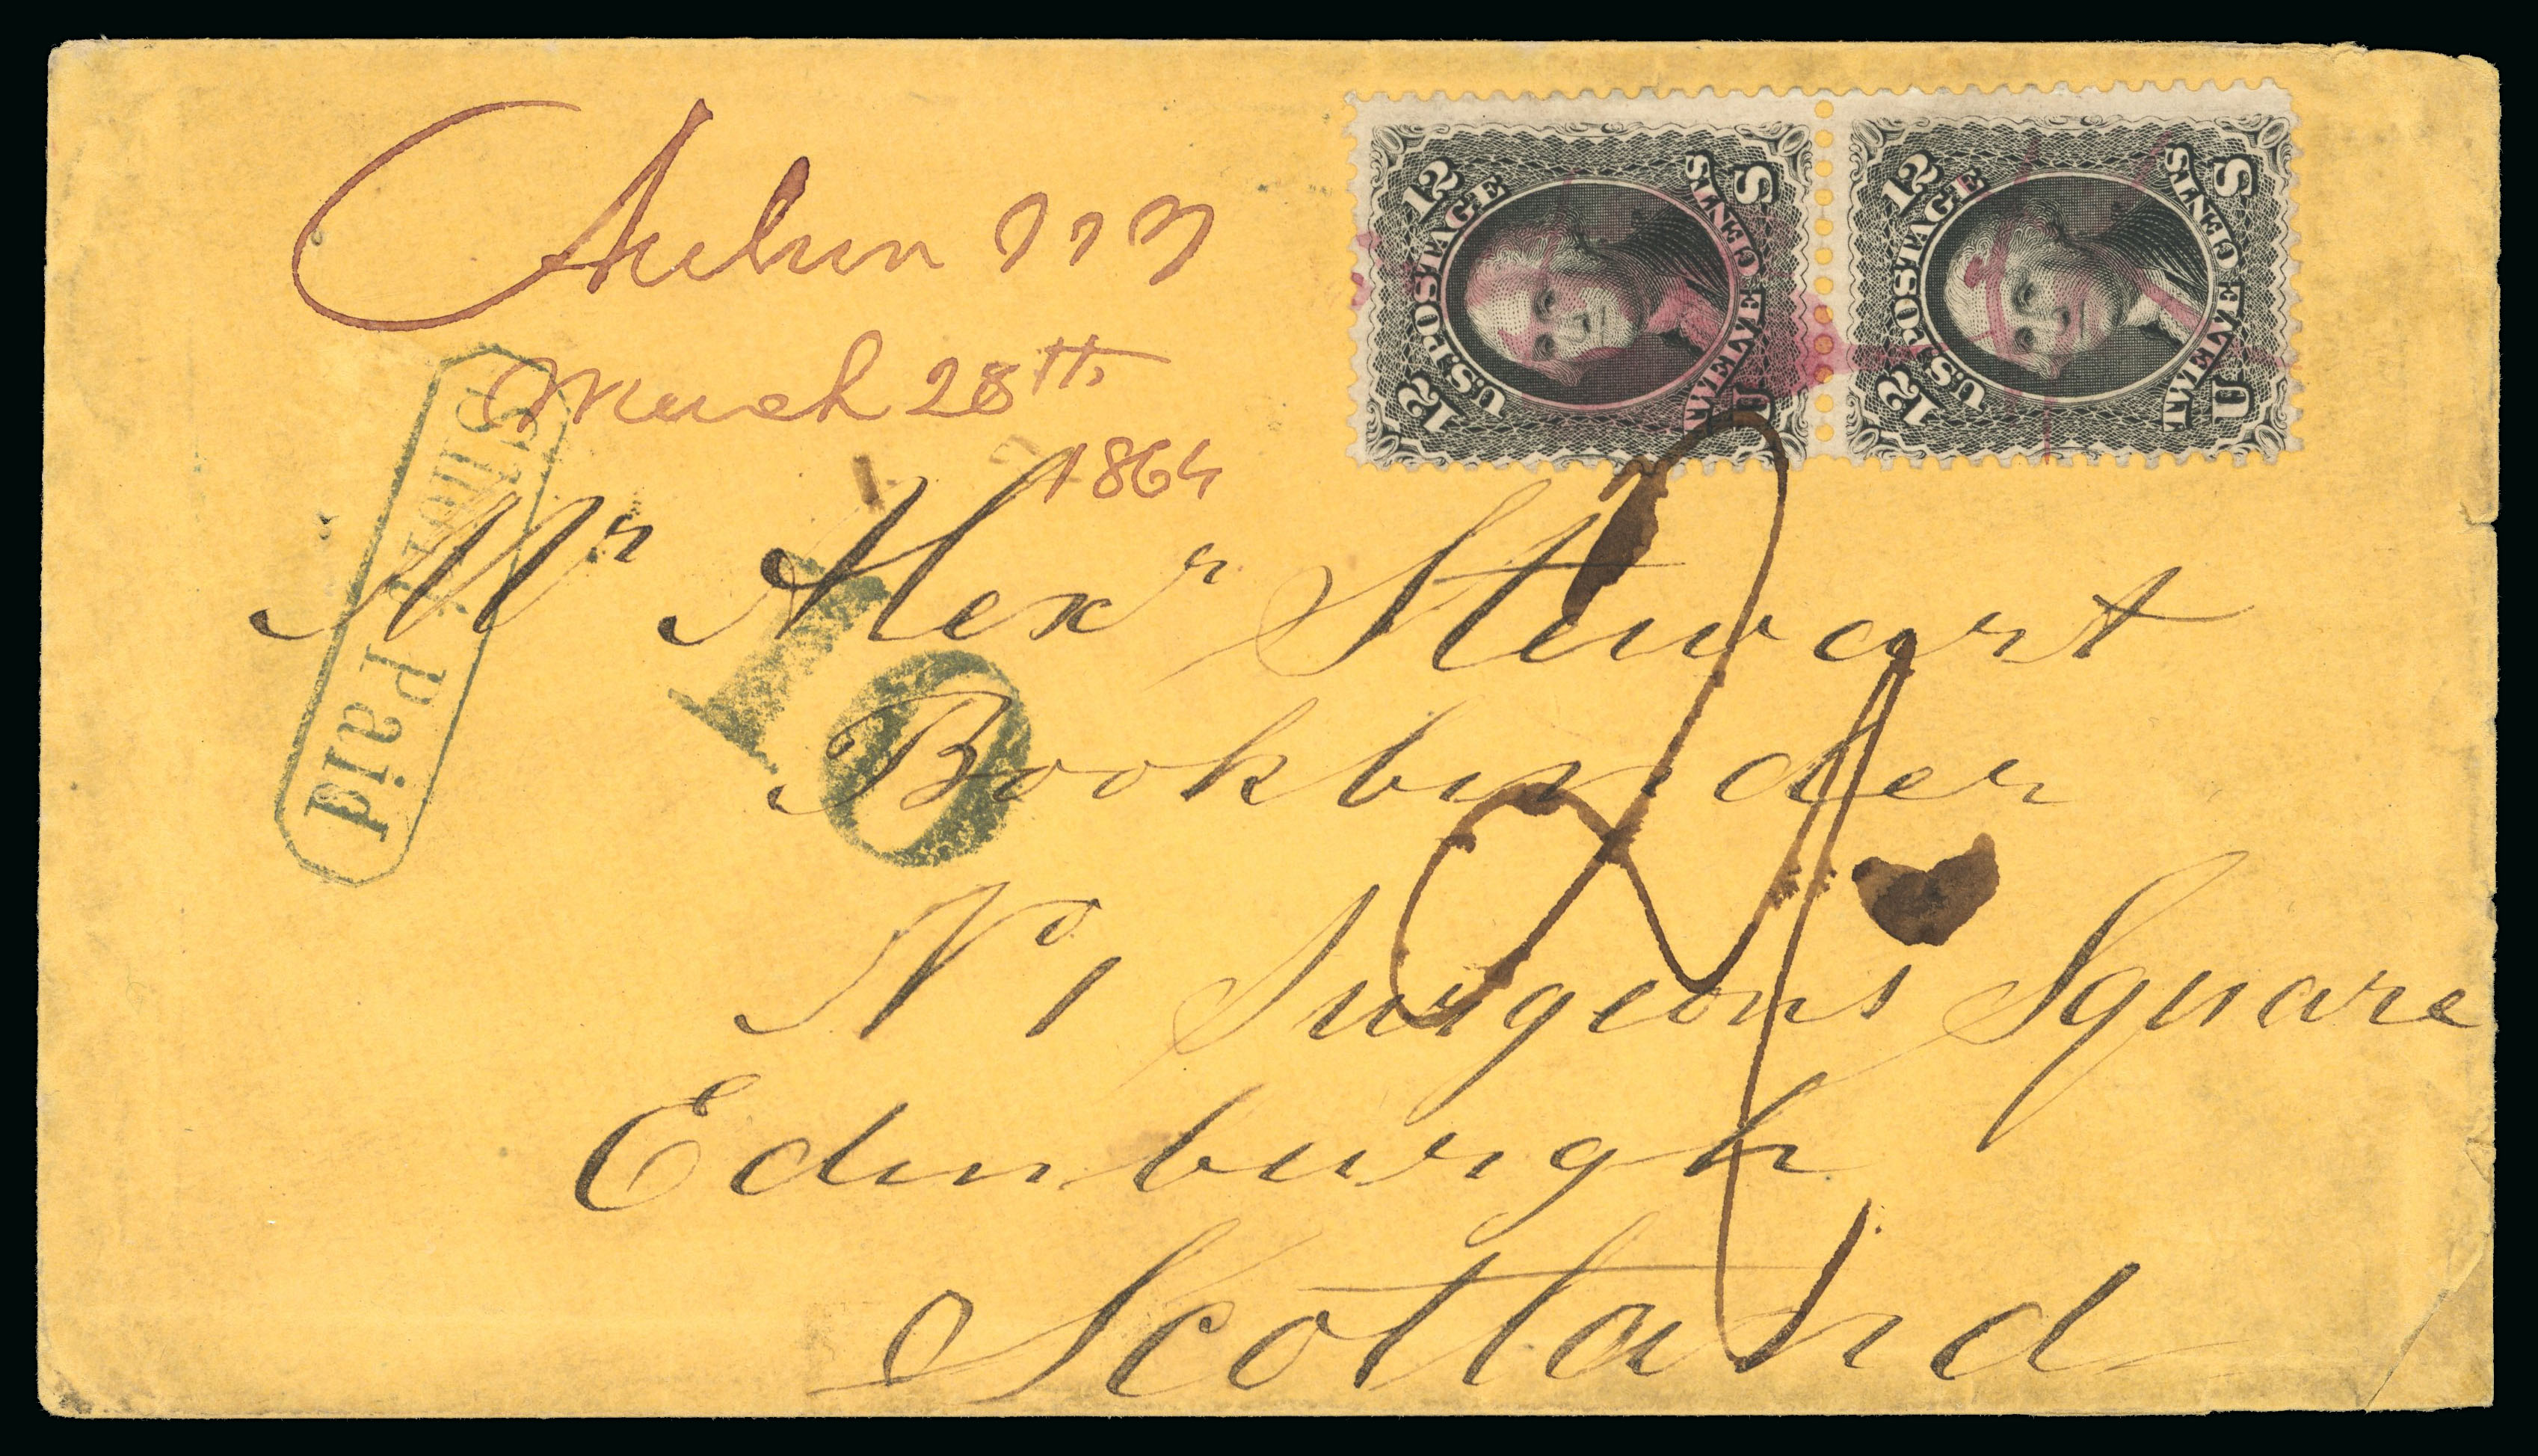 Auburn
March 28th
1864
12 U.S. POSTAGE 12
U TWELVE CENTS S
12 U.S. POSTAGE 12
U TWELVE CENTS S
Short Paid
10
Mr Alexr Stewart
Bookbinder
No 1 Surgeons Square
Edinburgh
Scotland